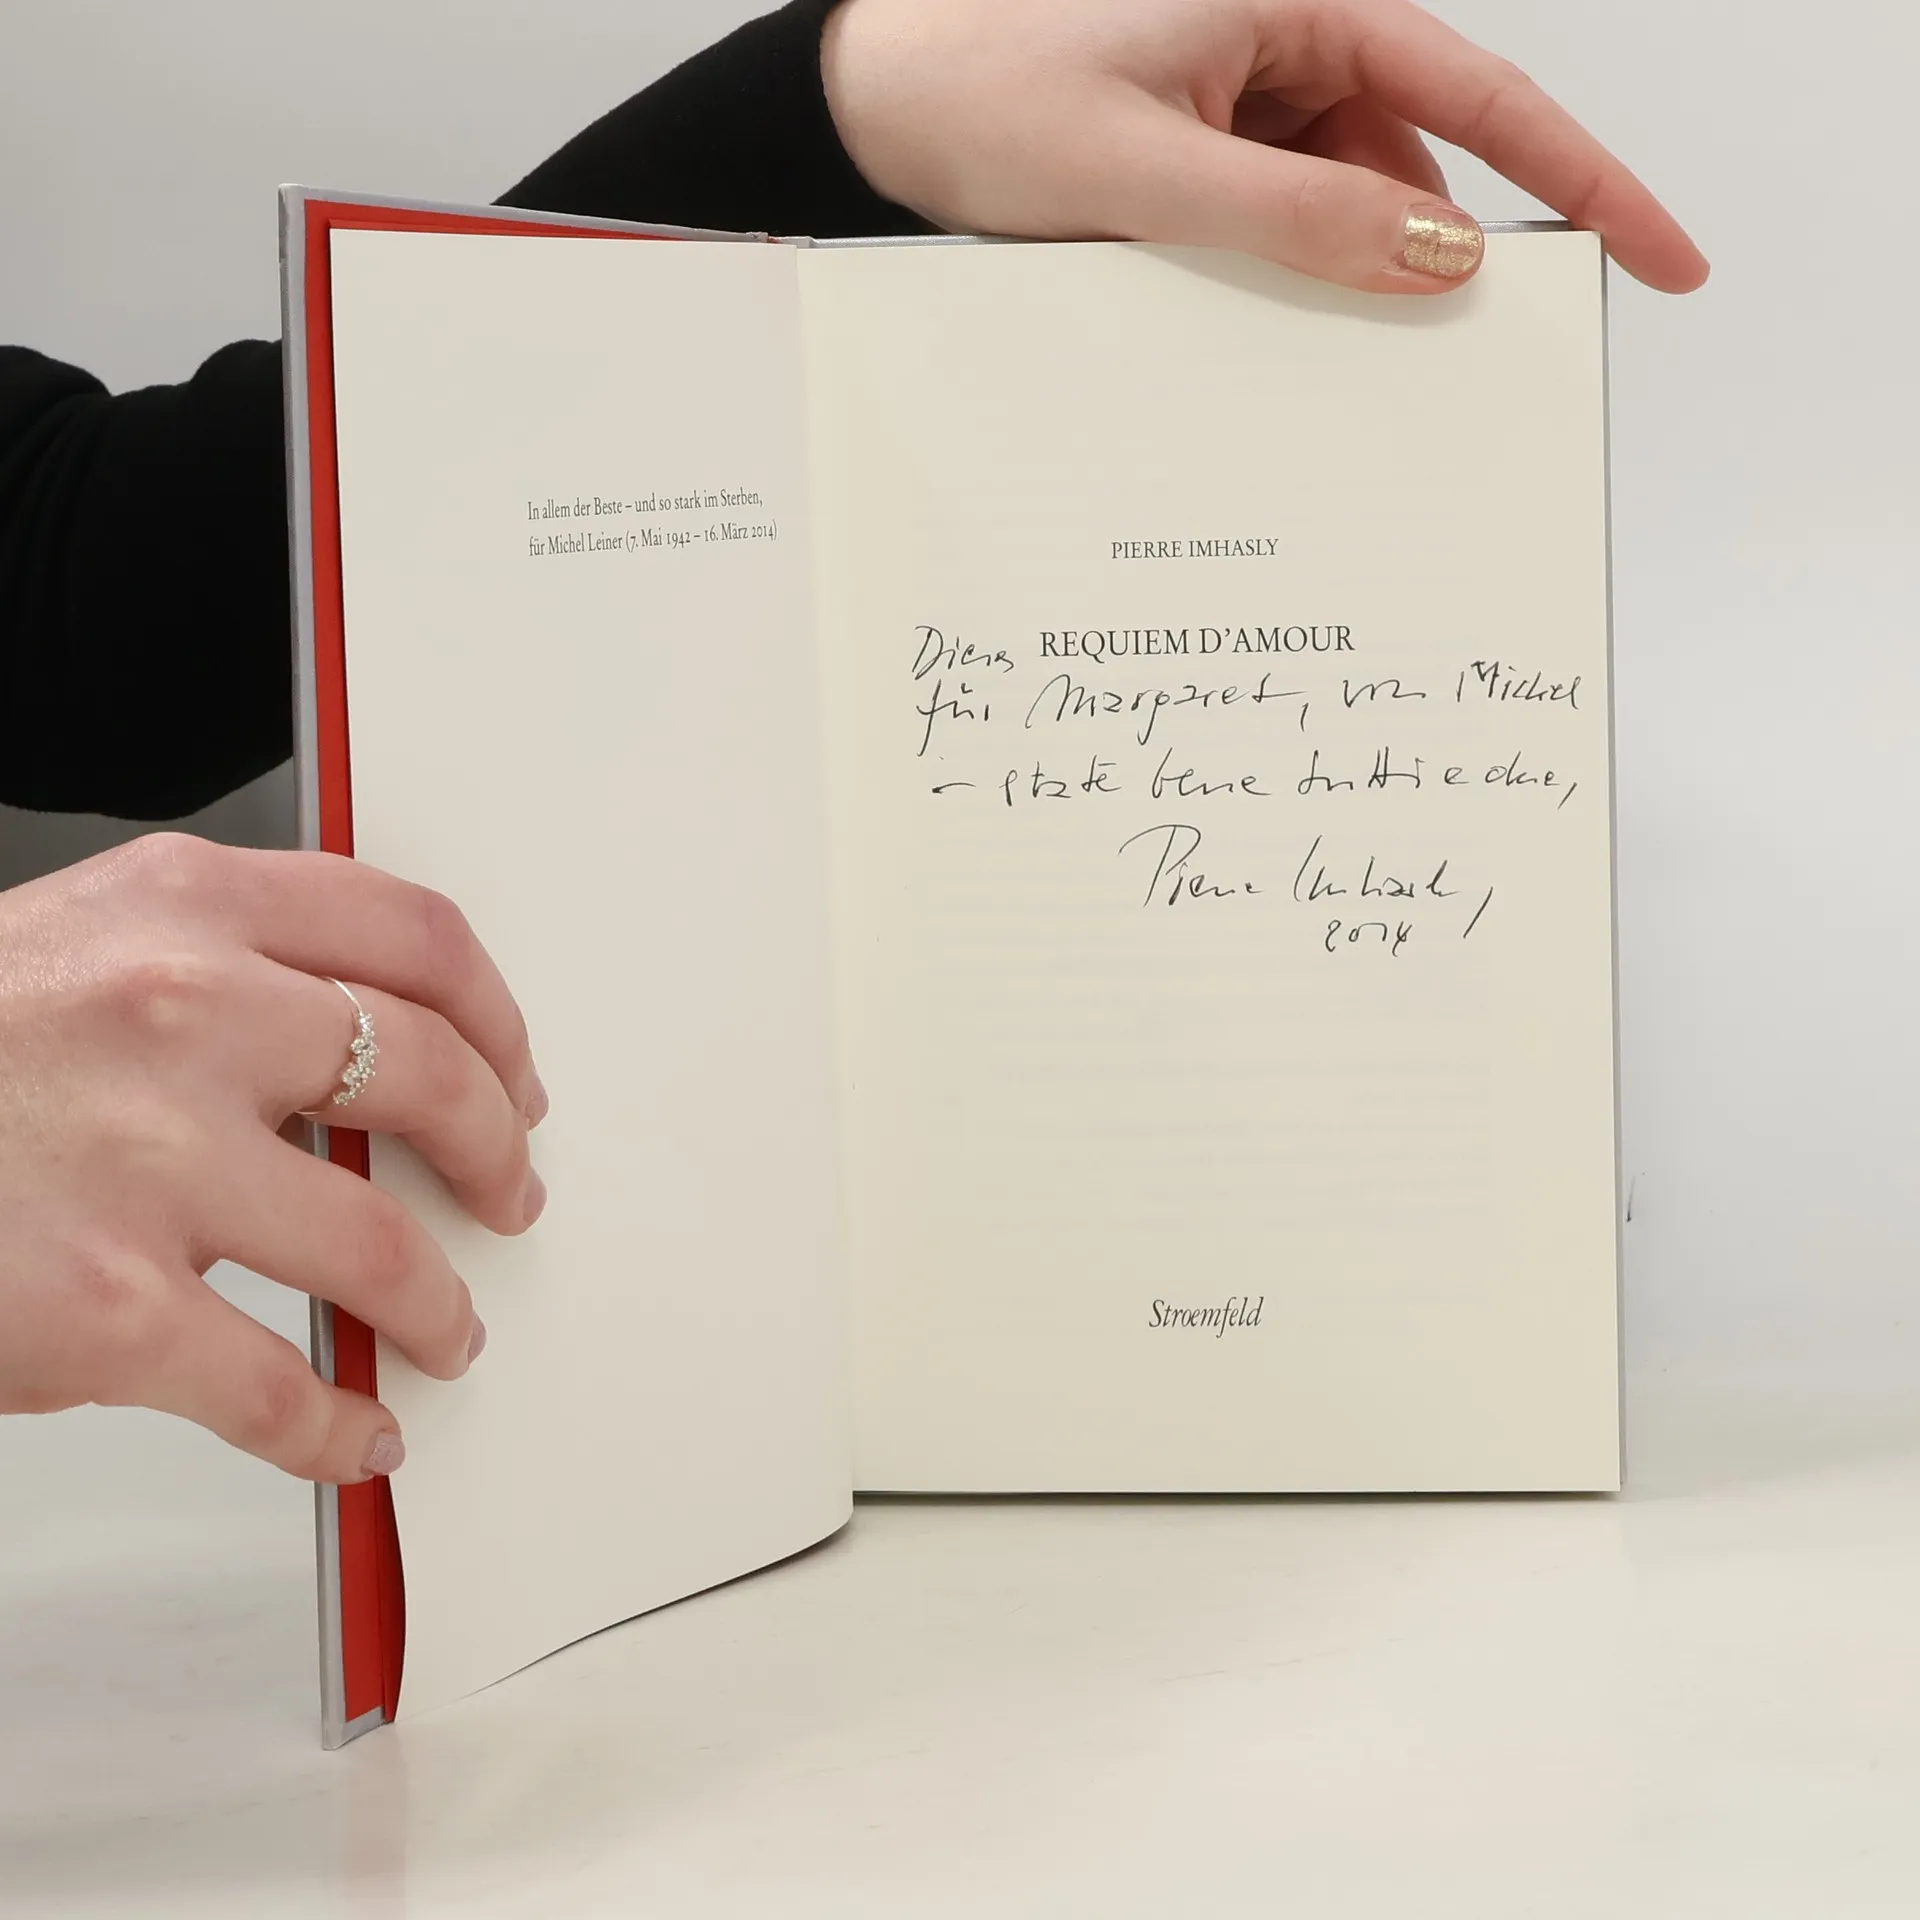 In allem der Beste – und so stark im Sterben,
für Michel Leiner (7. Mai 1942 – 16. März 2014)
PIERRE IMHASLY
REQUIEM D'AMOUR
Dieses
für Margaret, von Michel
– state bene tutti e due,
Pierre Imhasly,
2014
Stroemfeld